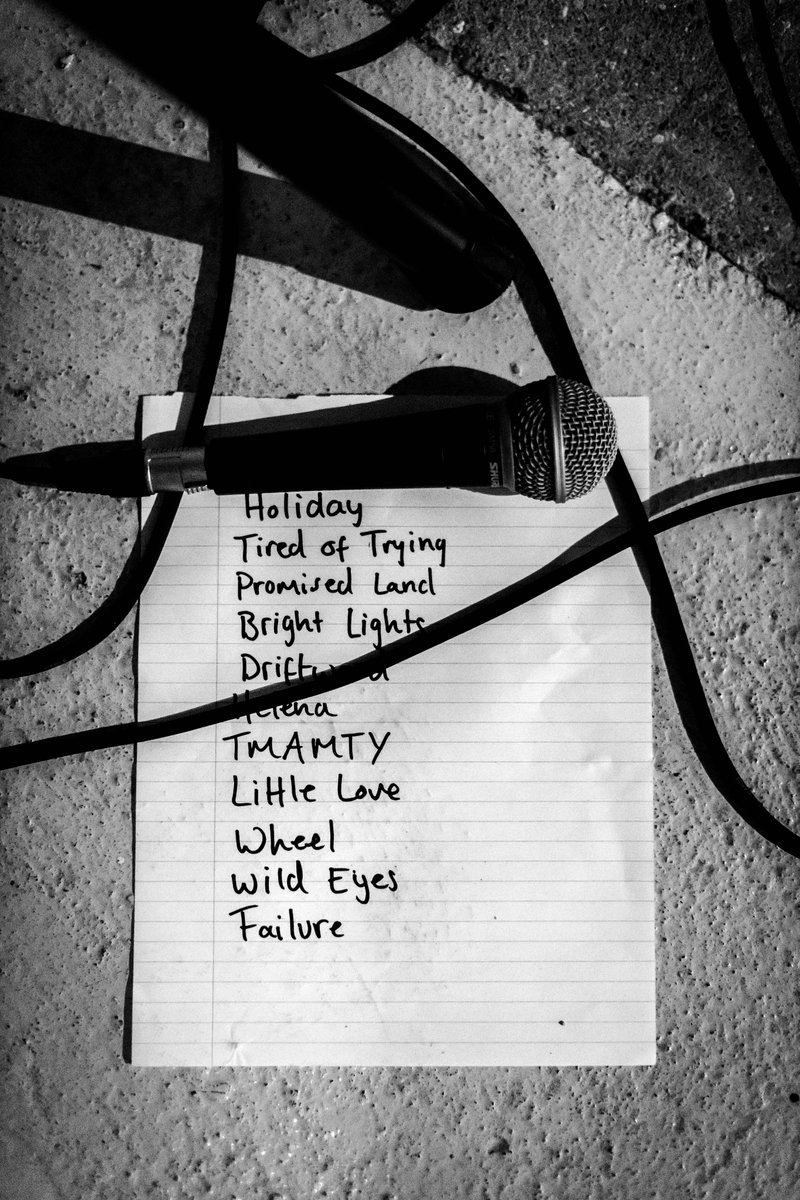 SHURE
Holiday
Tired of Trying
Promised Land
Bright Lights
Driftwood
Helena
TMAMTY
Little Love
Wheel
Wild Eyes
Failure